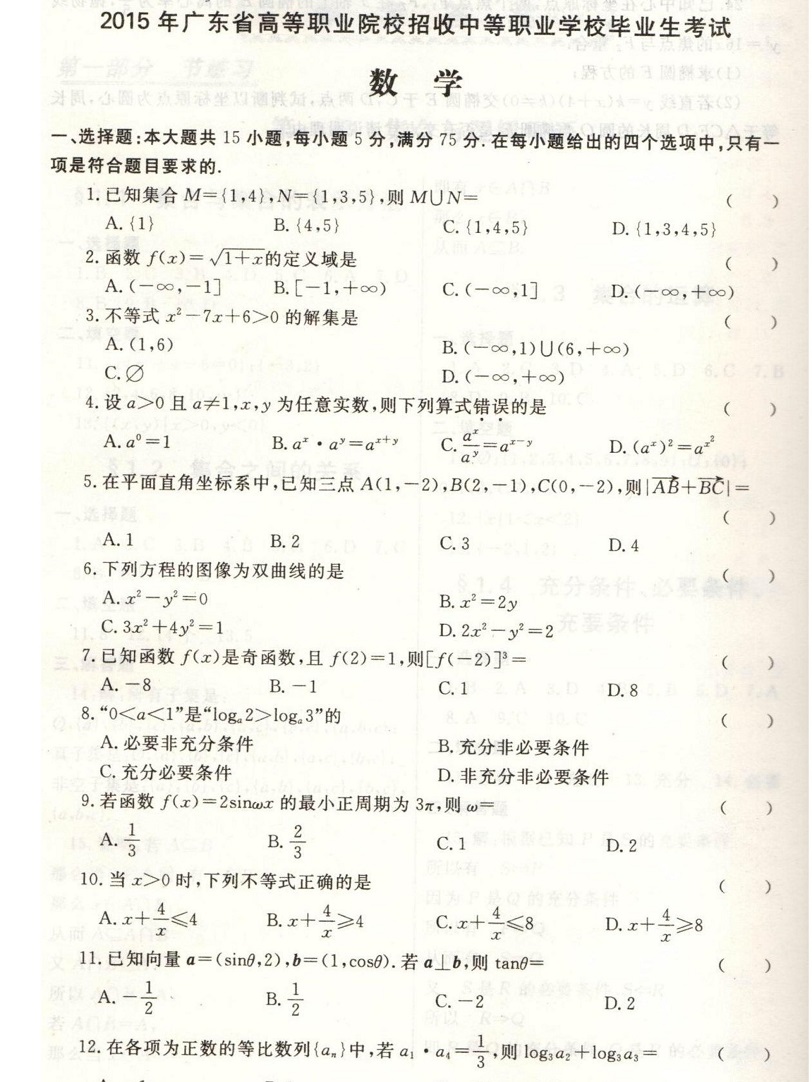 2015年广东省高等职业院校招收中等职业学校毕业生考试
数 学
一、选择题:本大题共 15 小题,每小题 5 分,满分 75 分. 在每小题给出的四个选项中,只有一
项是符合题目要求的.
1. 已知集合 M={1,4},N={1,3,5},则 M∪N= ( )
A. {1} B. {4,5} C. {1,4,5} D. {1,3,4,5}
2. 函数 f(x)=√(1+x)的定义域是 ( )
A. (-∞,-1] B. [-1,+∞) C. (-∞,1] D. (-∞,+∞)
3. 不等式 x²-7x+6>0 的解集是 ( )
A. (1,6) B. (-∞,1)∪(6,+∞)
C. ∅ D. (-∞,+∞)
4. 设 a>0 且 a≠1,x,y 为任意实数,则下列算式错误的是 ( )
A. a⁰=1 B. aˣ·aʸ=aˣ⁺ʸ C. aˣ/aʸ=aˣ⁻ʸ D. (aˣ)²=a^(x²)
5. 在平面直角坐标系中,已知三点 A(1,-2),B(2,-1),C(0,-2),则|AB→+BC→|=
( )
A. 1 B. 2 C. 3 D. 4
6. 下列方程的图像为双曲线的是 ( )
A. x²-y²=0 B. x²=2y
C. 3x²+4y²=1 D. 2x²-y²=2
7. 已知函数 f(x)是奇函数,且 f(2)=1,则[f(-2)]³= ( )
A. -8 B. -1 C. 1 D. 8
8. “0<a<1”是“logₐ2>logₐ3”的 ( )
A. 必要非充分条件 B. 充分非必要条件
C. 充分必要条件 D. 非充分非必要条件
9. 若函数 f(x)=2sinωx 的最小正周期为 3π,则 ω= ( )
A. 1/3 B. 2/3 C. 1 D. 2
10. 当 x>0 时,下列不等式正确的是 ( )
A. x+4/x≤4 B. x+4/x≥4 C. x+4/x≤8 D. x+4/x≥8
11. 已知向量 a=(sinθ,2),b=(1,cosθ). 若 a⊥b,则 tanθ= ( )
A. -1/2 B. 1/2 C. -2 D. 2
12. 在各项为正数的等比数列{aₙ}中,若 a₁·a₄=1/3,则 log₃a₂+log₃a₃= ( )